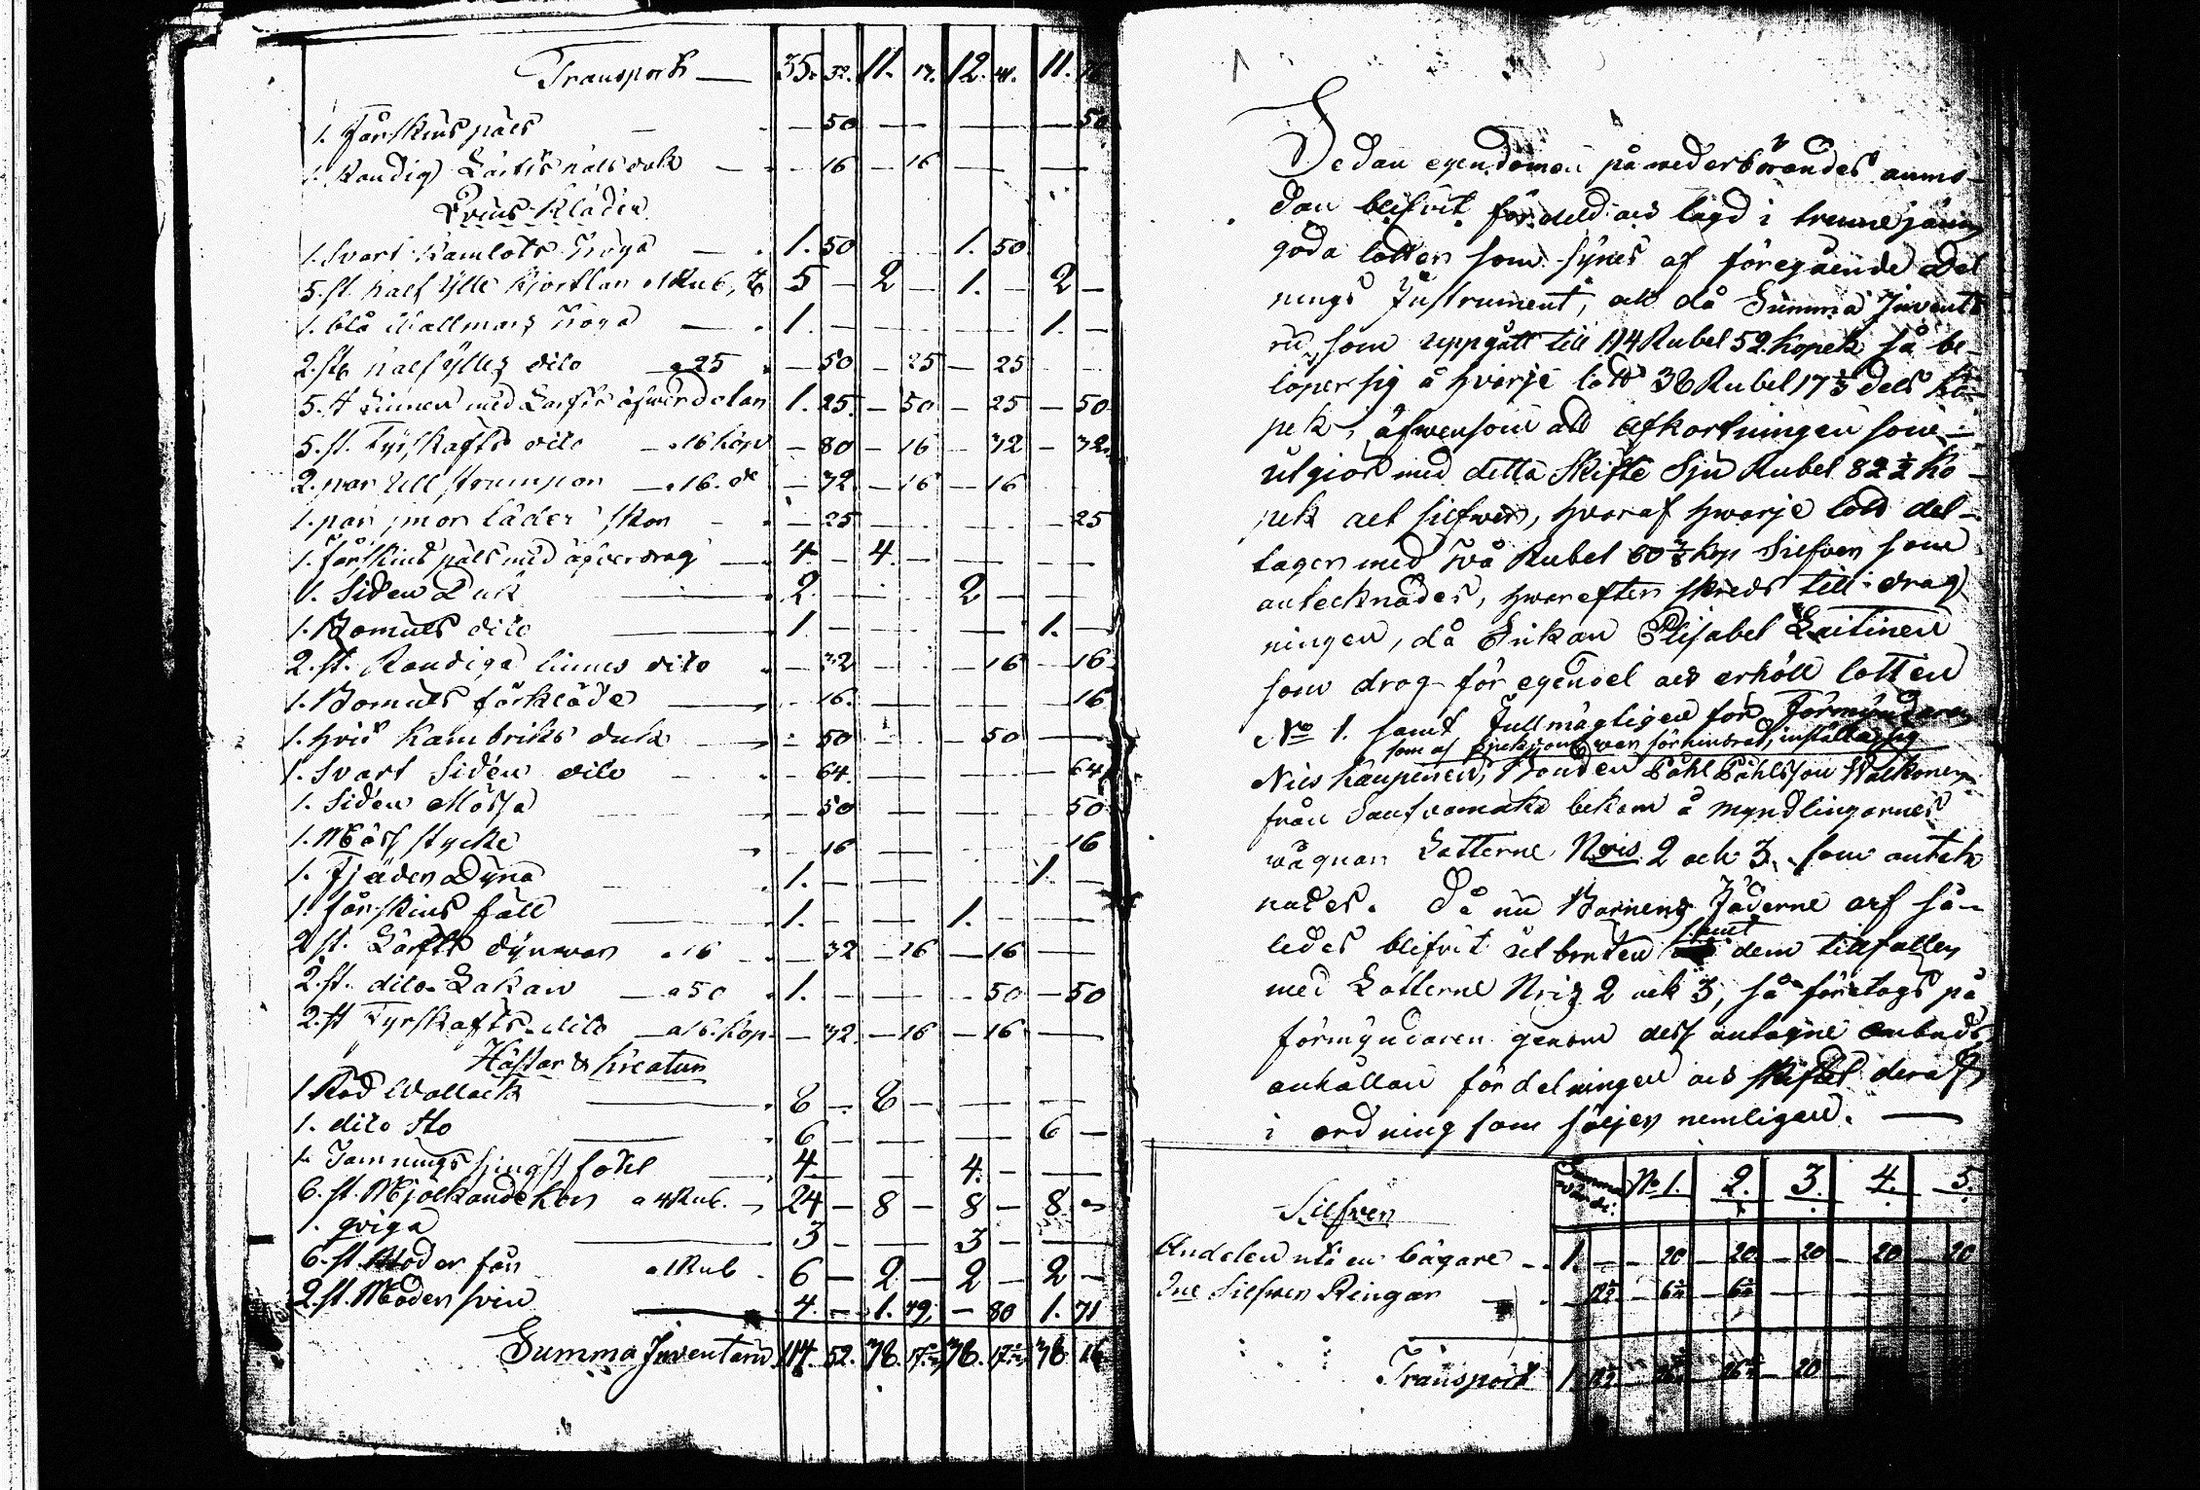 Transport — 35. 52. 11. 17. 12. 41. 11.
1. Fårskins päls — — 50 — — — — — 50
1. Randig Lärfts halsduk — — 16 — 16 — — —
Qvins Kläder
1. Svart Kamlots Tröja — 1. 50 1. 50
5. st. half ylle Kjortlar 1 Rub. 5 — 2 — 1. — 2 —
1. blå Wallmars Tröja — 1. — — — 1. —
2. st. half ylles dito — a 25 — 50 — 25 — 25
5. st Linnen med Lärfts öfwerdelar 1. 25. — 50 — 25 — 50
5. st. Fyrskafts dito — a 16 kop — 80 — 16 — 32 — 32
2. par ull strumpor — a 16. — 32 — 16 — 16
1. par läder skor — 25 — — — 25
1. fårskins päls med öfverdrag — 4. — 4. — — —
1. Siden Duk — 2 — 2 — —
1. Bomuls dito — 1 — — — 1. —
2. st. Randiga linnes dito — 32 — — 16 — 16
1. Bomuls förkläde — 16. — — — 16
1. hvit Kambriks duk — 50 — — 50 —
1. Svart Siden dito — 64. — — — 64
1. Siden Mössa — 50 — — — 50
1. Möss stycke — 16 — — — 16
1. Fjäder Dyna 1. — — — 1. —
1. fårskins fäll 1. — — 1. — —
2 st. Lärfts dynwar a 16 — 32 — 16 — 16 —
2. st. dito Lakan — a 50 1. — — — 50 — 50
2. st Fyrskafts dito — a 16. kop. — 32. — 16 — 16 —
Hästar & Kreatur
1 Röd Wallack — 8 — 8 — — —
1. dito Sto — 6 — — — 6 —
1. Tamnings hingst fåhl — 4. — — 4. — —
6. st. Mjölkande Kor a 4 Rub. 24 — 8 — 8 — 8
1. qviga — 3 — — 3 — —
6. st. Moder får a 1 Rub 6 — 2 — 2 — 2 —
2. st. Moder svin — 4. — 1. 79. — 80 1. 71
Summa Inventarii 114. 52. 38. 17 38. 17 38 16
Sedan egendomen på wederbörandes anmo-
dan blifvit fördeld och lagd i trenne jämn
goda lotter som synes af föregående Del
nings Instrument, och då Summa Inventa
rii som uppgått till 114 Rubel 52 kopek så be-
löper sig å hvarje lott 38 Rubel 17 1/3 dels ko-
pek, äfwensom att afkortningen som
utgiör med detta Skifte Sju Rubel 82 1/2 ko-
pek allt silfwer, hvaraf hwarje lott del-
tager med två Rubel 60 kop Silfver som
antecknades, hwarefter skreds till drag
ningen, då Enkan Elisabet Laitinen
som drog för egen del och erhöll lotten
No 1. samt fullmägtigen för Förmyndaren
som af war förhindrad, infälla sig
Nils Kaupinen, Bonden Påhl Påhlsson Walkonen
från bekom å myndlingarnes
wägnar Lotterne Nris 2 och 3, som anteck
nades. Då nu Barnens Fäderne arf så-
ledes blifvit utbruten samt dem tillfallen
med Lotterne Nris 2 och 3, så företogs på
förmyndaren genom dess antagne ombuds
anhållan fördelningen och skiftet deraf
i ordning som följer nemligen. —
Summa värde. No 1. 2. 3. 4. 5.
Silfver
Andelen uti en bägare — 1. — — 20 — 20 — 20 — 20 — 20
2ne Silfwer Ringar — 12 1/2 — 6 1/4 — 6 1/4 — — —
Transport 1. 12 1/2 — 26 1/4 — 26 1/4 — 20